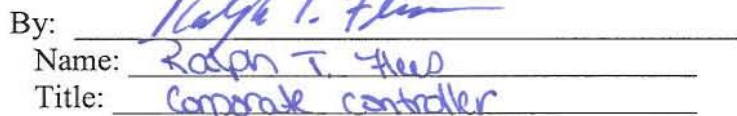 By: Ralph T.
Name: Ralph T.
Title: Corporate controller